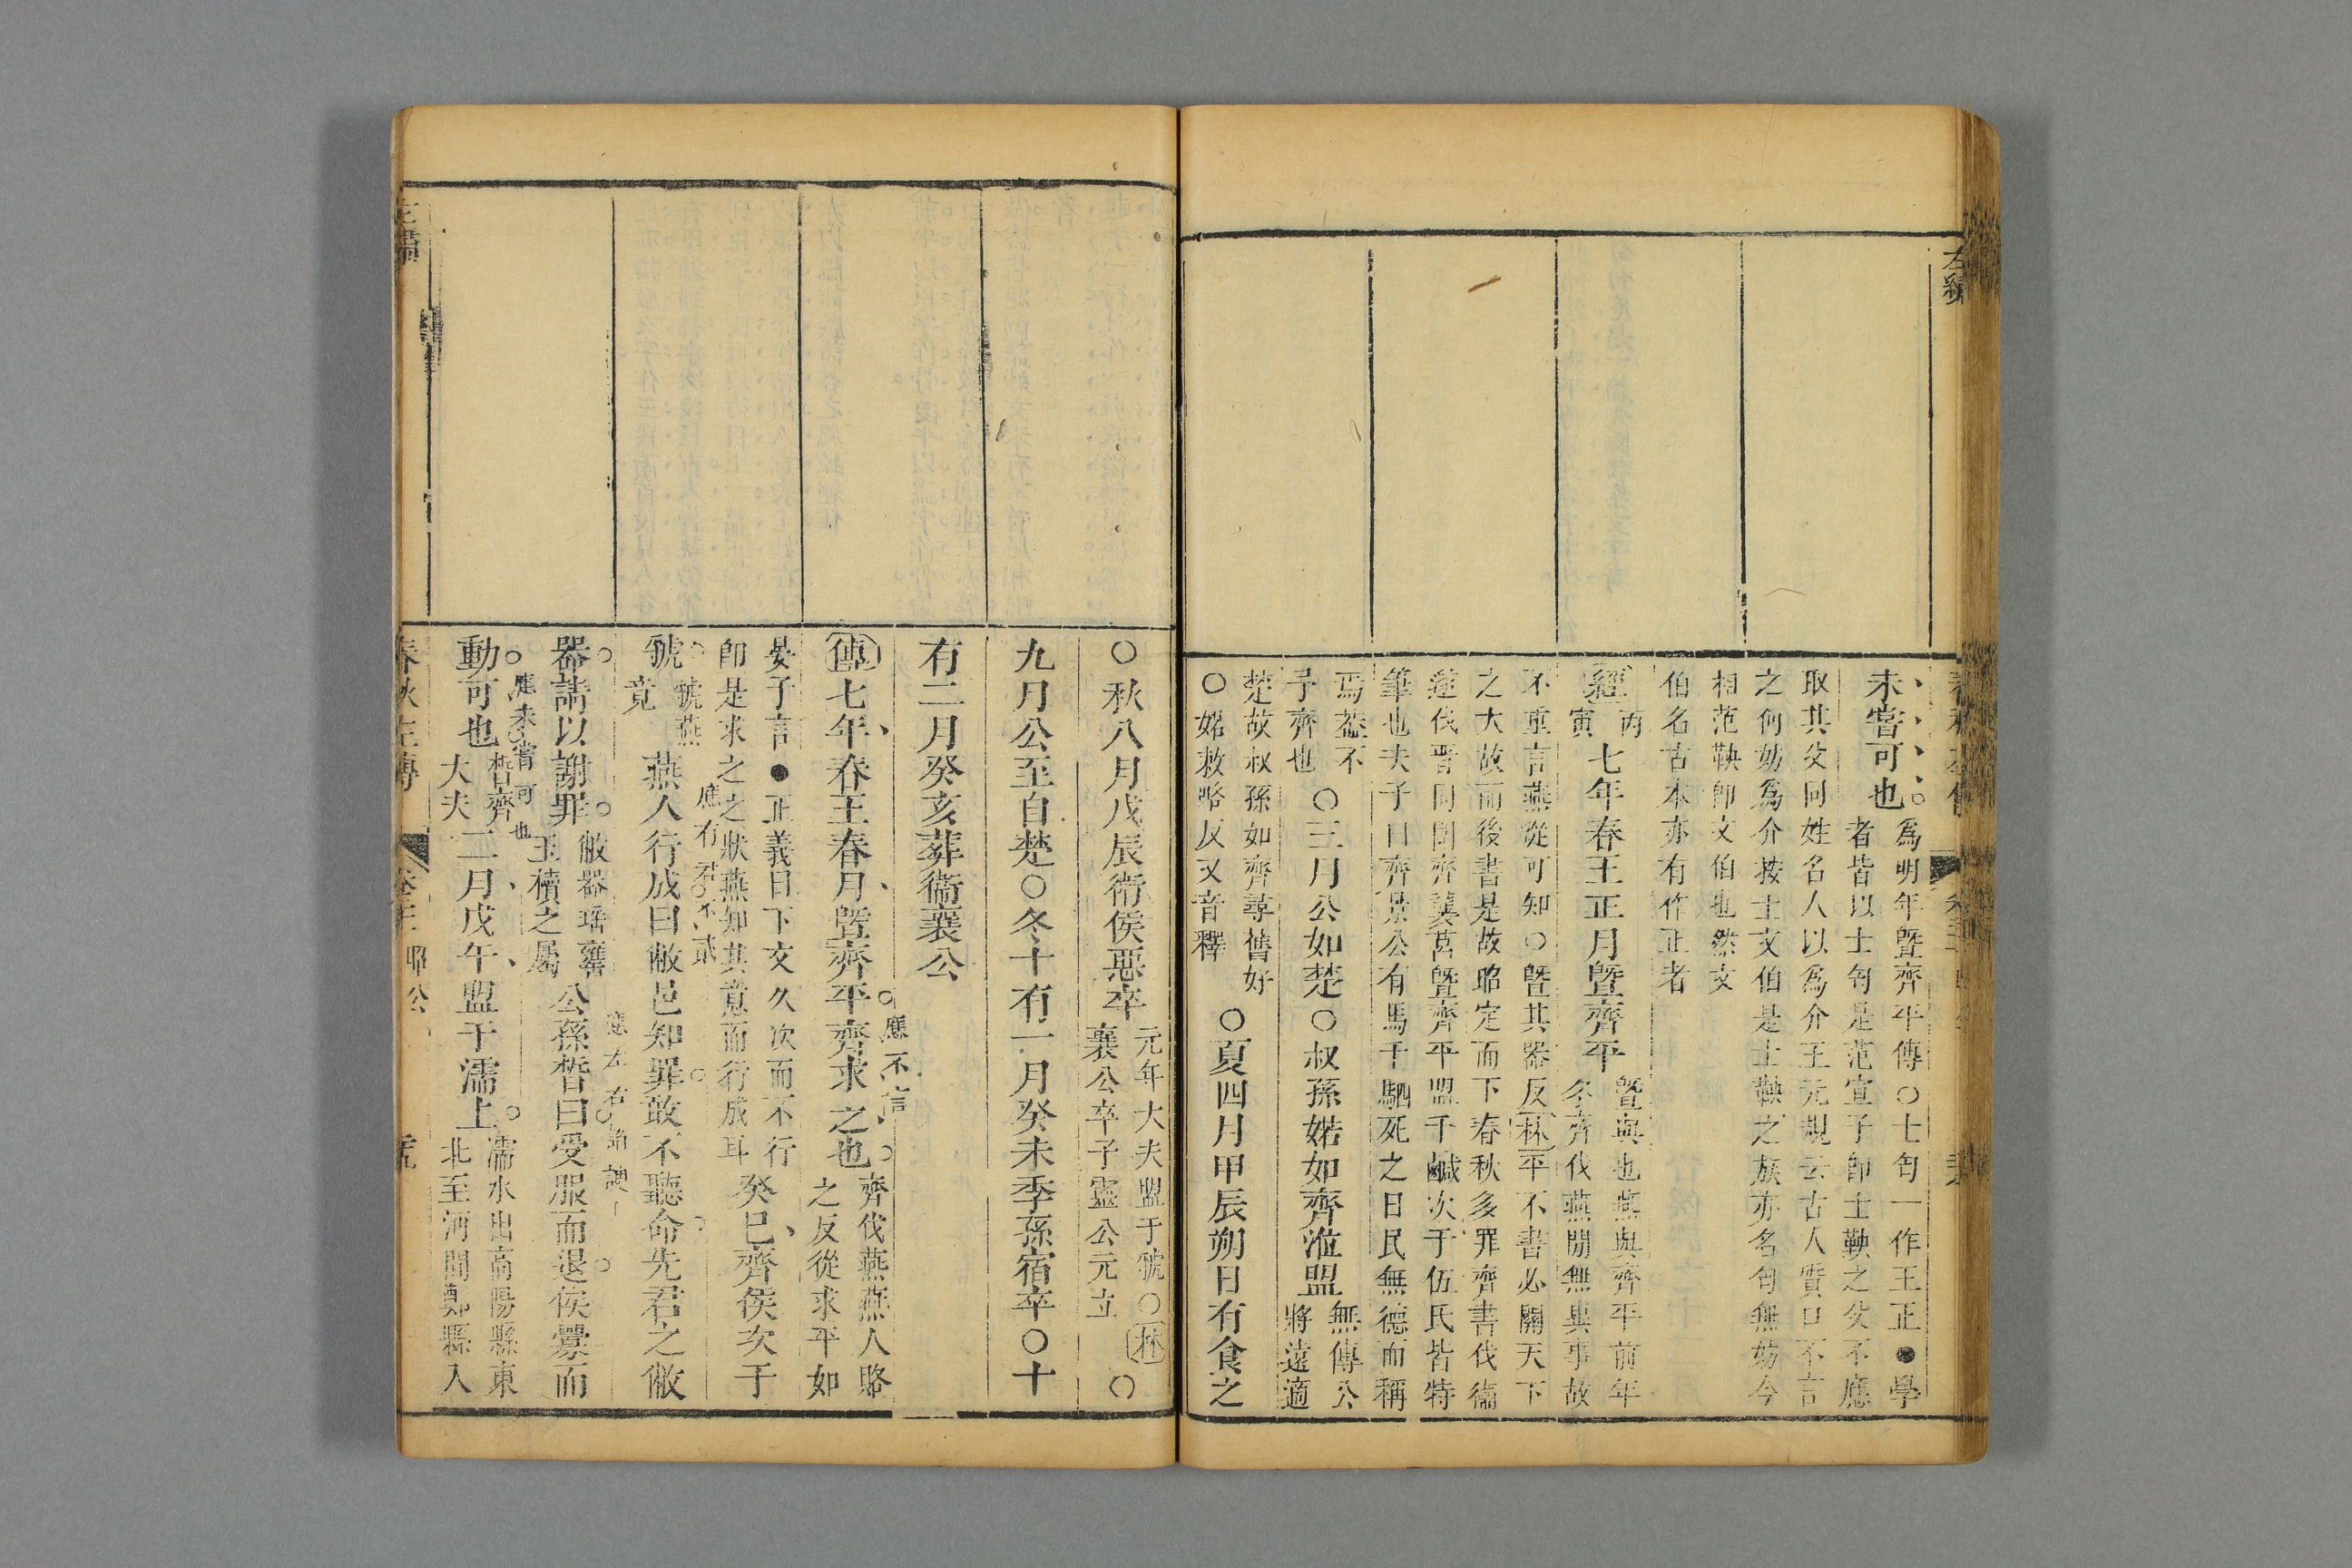 左繡
未嘗可也
爲明年暨齊平傳○士匄一作王正●學
者皆以士匄是范宣子卽士鞅之父不應
取其父同姓名人以爲介王元規云古人質口不言
之何妨爲介按士文伯是士鞅之族亦名匄無妨今
相范鞅卽文伯也然文
伯名古本亦有作正者
經丙寅七年春王正月暨齊平
暨與也燕與齊平前年
冬齊伐燕間無異事故
不重言燕從可知○暨其器反林平不書必關天下
之大故而後書是故昭定而下春秋多罪齊書伐衛
遂伐晉同圍齊冀莒暨齊平盟于鹹次于伍氏皆特
筆也夫子曰齊景公有馬千駟死之日民無德而稱
焉蓋不
予齊也
○三月公如楚○叔孫婼如齊涖盟
無傳公
將遠適
楚故叔孫如齊尋舊好
○婼敕略反又音釋
○夏四月甲辰朔日有食之
○秋八月戊辰衛侯惡卒
元年大夫盟于虢○林○
襄公卒子靈公元立
九月公至自楚○冬十有一月癸未季孫宿卒○十
有二月癸亥葬衞襄公
傳七年春王春月暨齊平齊求之也
應不言
齊伐燕燕人賂
之反從求平如
晏子言●正義曰下文久次而不行
卽是求之之狀燕知其意而行成耳
癸巳齊侯次于
虢
虢燕
竟
燕人行成曰敝邑知罪敢不聽命先君之敝
應有君不貳
器請以謝罪
敝器瑤罋
玉櫝之屬
公孫晳曰受服而退俟釁而
應左右諂諛
動可也
應未嘗可也
晳齊
大夫
二月戊午盟于濡上
濡水出高陽縣東
北至河間鄚縣入
春秋左傳
昭公